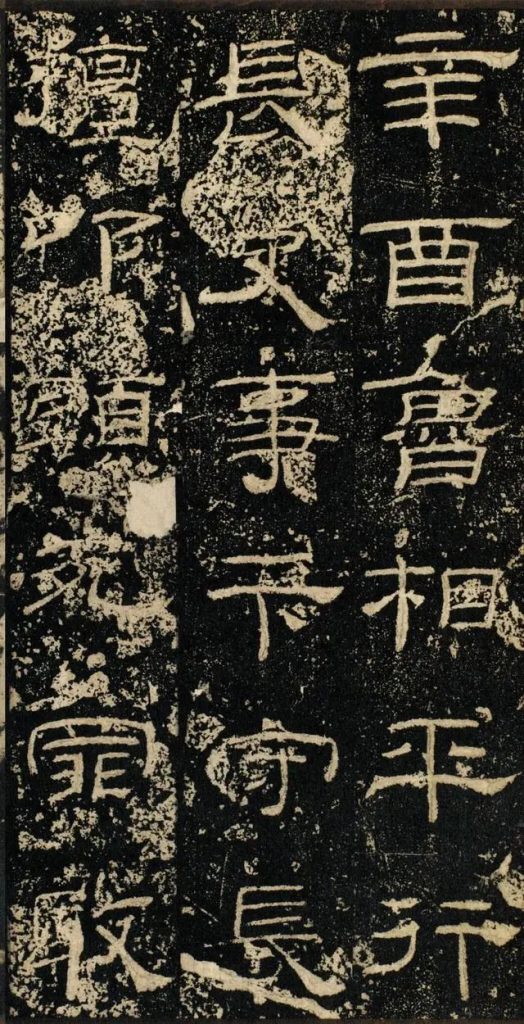 辛酉魯相平行
長史事卞守長
擅叩頭死罪敢